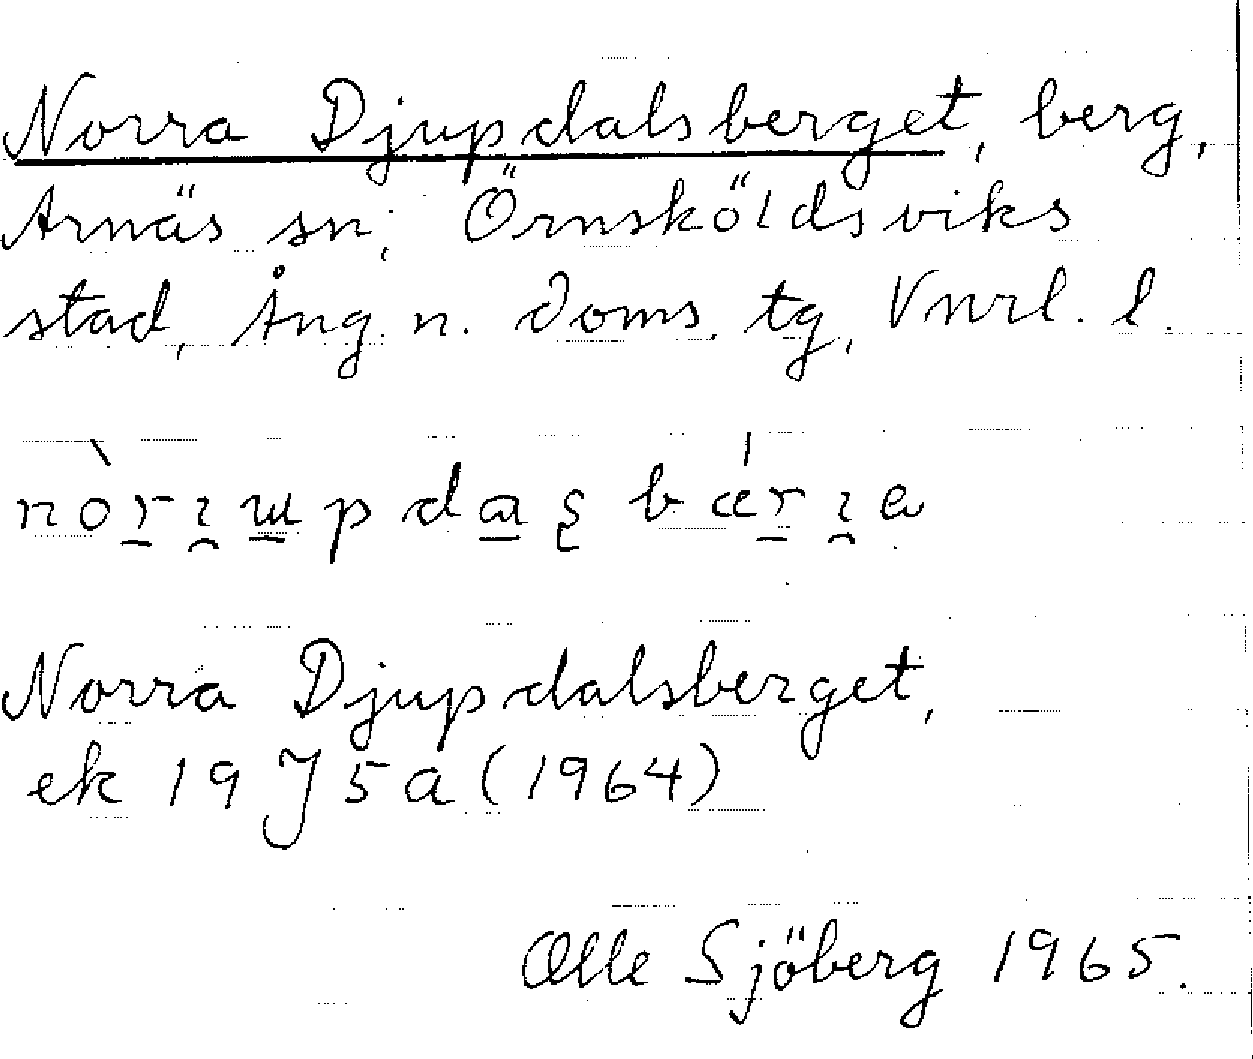 Norra Djupdalsberget, berg,
Arnäs sn; Örnsköldsviks
stad, Ång. n. doms. tg, Vnrl. l.
Norra Djupdalsberget,
ek 19 J 5 a (1964)
Olle Sjöberg 1965.